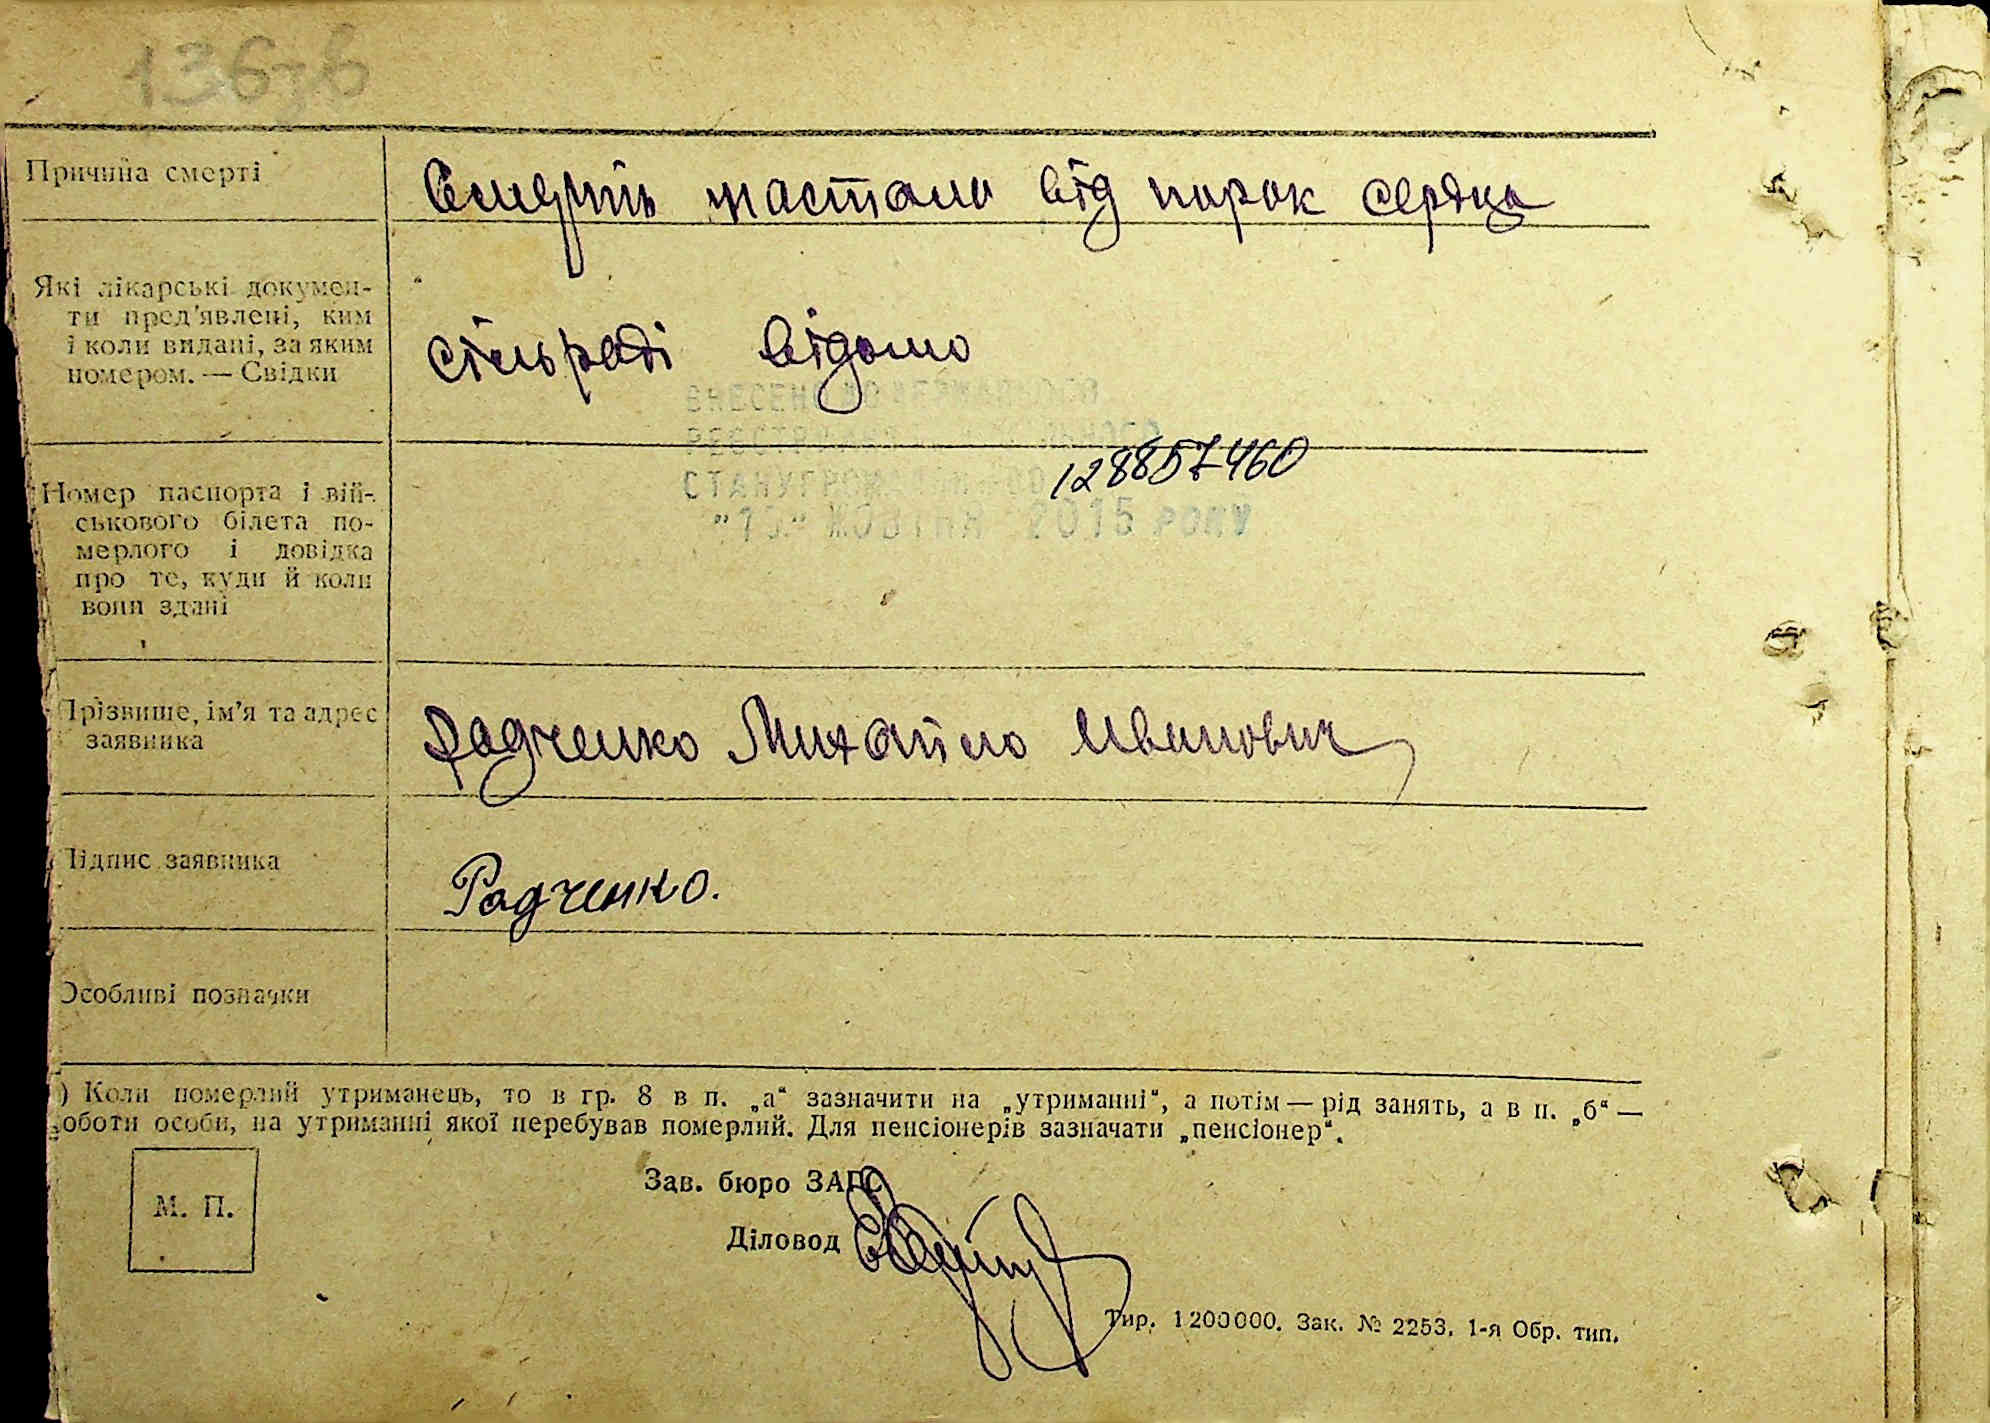 136зв
Причина смерті
Смерть настала від порок сердца
Які лікарські докумен-
ти пред'явлені, ким
і коли видані, за яким
номером. — Свідки
сільраді відомо
ВНЕСЕНО ДО ДЕРЖАВНОГО
РЕЄСТРУ АКТІВ ЦИВІЛЬНОГО
СТАНУ ГРОМАДЯН
128857460
ЖОВТНЯ 2015 РОКУ
Номер паспорта і вій-
ськового білета по-
мерлого і довідка
про те, куди й коли
вони здані
Прізвище, ім'я та адрес
заявника
Радченко Михайло Иванович
Підпис заявника
Радченко.
Особливі позначки
) Коли померлий утриманець, то в гр. 8 в п. „а“ зазначити на „утриманні“, а потім — рід занять, а в п. „б“ —
роботи особи, на утриманні якої перебував померлий. Для пенсіонерів зазначати „пенсіонер“.
М. П.
Зав. бюро ЗАГС
Діловод
Тир. 1200000. Зак. № 2253. 1-я Обр. тип.